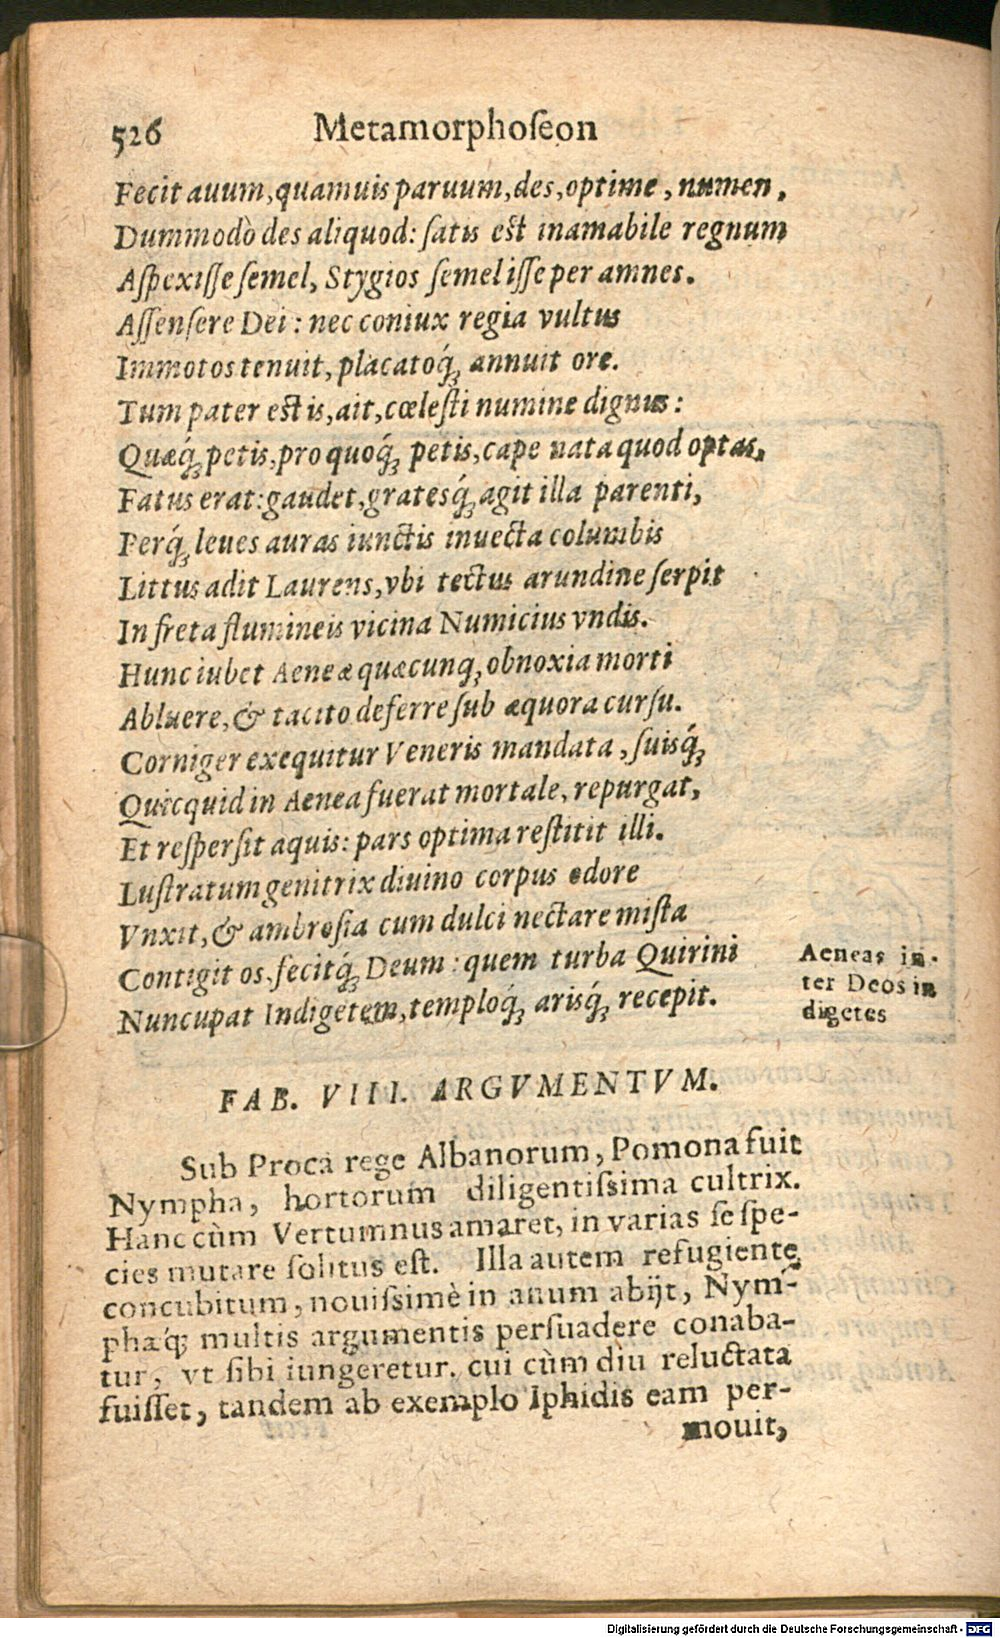 526 Metamorphoſeon
Fecit auum, quamuis paruum, des, optime, numen,
Dummodò des aliquod: ſatis est inamabile regnum
Aſpexiſſe ſemel, Stygios ſemel iſſe per amnes.
Aſſenſere Dei: nec coniux regia vultus
Immotos tenuit, placatoq́ꝫ annuit ore.
Tum pater est is, ait, cœleſti numine dignus:
Quæq́ꝫ petis, pro quoq́ꝫ petis, cape nata quod optas,
Fatus erat: gaudet, gratesq́ꝫ agit illa parenti,
Perq́ꝫ leues auras iunctis inuecta columbis
Littus adit Laurens, vbi tectus arundine ſerpit
In freta flumineis vicina Numicius vndis.
Hunc iubet Aeneæ quæcunqꝫ obnoxia morti
Abluere, & tacito deferre ſub æquora curſu.
Corniger exequitur Veneris mandata, ſuisq́ꝫ
Quicquid in Aenea fuerat mortale, repurgat,
Et reſperſit aquis: pars optima reſtitit illi.
Luſtratum genitrix diuino corpus odore
Vnxit, & ambroſia cum dulci nectare miſta
Contigit os, fecitq́ꝫ Deum: quem turba Quirini
Nuncupat Indigetem, temploq́ꝫ arisq́ꝫ recepit.
Aeneas in-
ter Deos in
digetes
FAB. VIII. ARGVMENTVM.
Sub Proca rege Albanorum, Pomona fuit
Nympha, hortorum diligentiſsima cultrix.
Hanc cùm Vertumnus amaret, in varias ſe ſpe-
cies mutare ſolitus eſt. Illa autem refugiente
concubitum, nouiſsimè in anum abijt, Nym-
phæq́ꝫ multis argumentis perſuadere conaba-
tur, vt ſibi iungeretur. cui cùm diu reluctata
fuiſſet, tandem ab exemplo Iphidis eam per-
mouit,
Digitalisierung gefördert durch die Deutsche Forschungsgemeinschaft - DFG